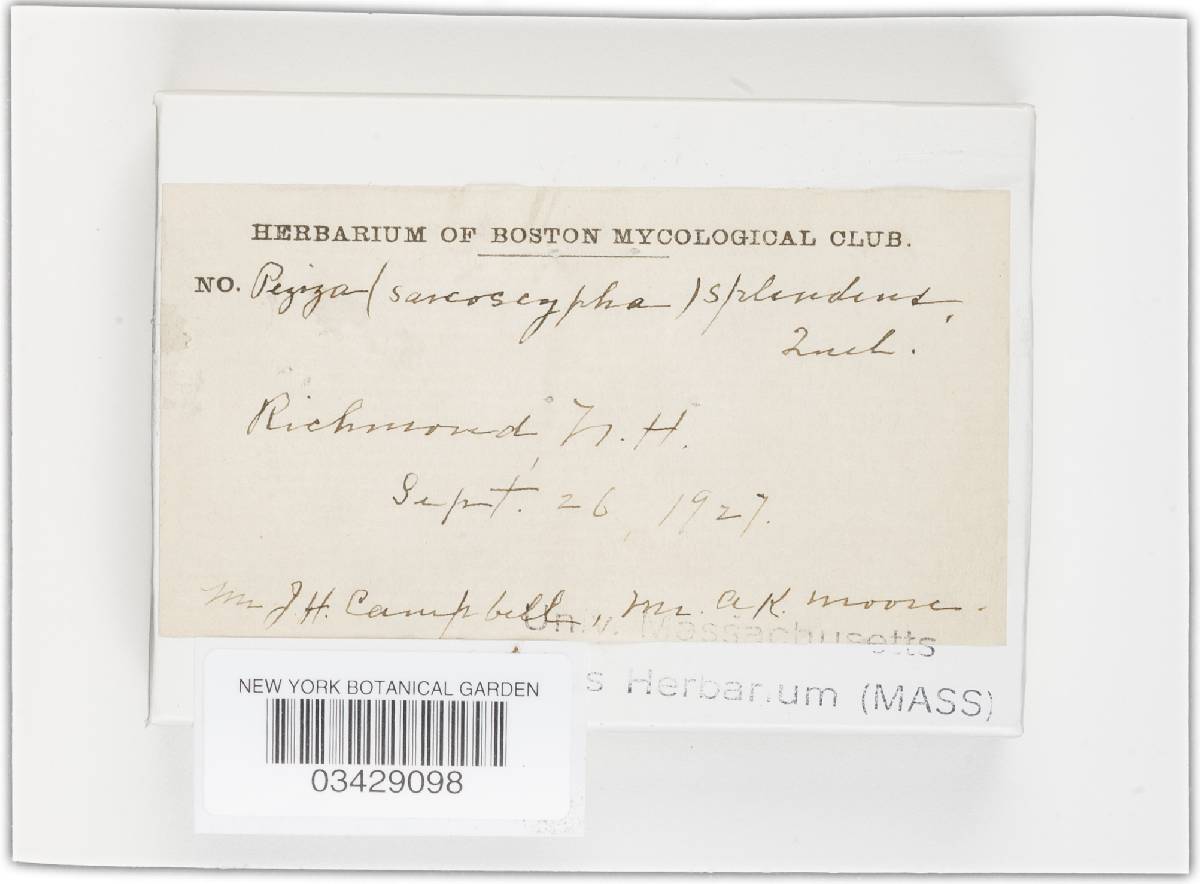 HERBARIUM OF BOSTON MYCOLOGICAL CLUB.
NO. Peziza (sarcoscypha) splendens,
Quel.
Richmond, N.H.
Sept. 26, 1927.
Mr J.H. Campbell, Mr. A.K. Moore.
Massachusetts
s Herbarium (MASS)
NEW YORK BOTANICAL GARDEN
03429098